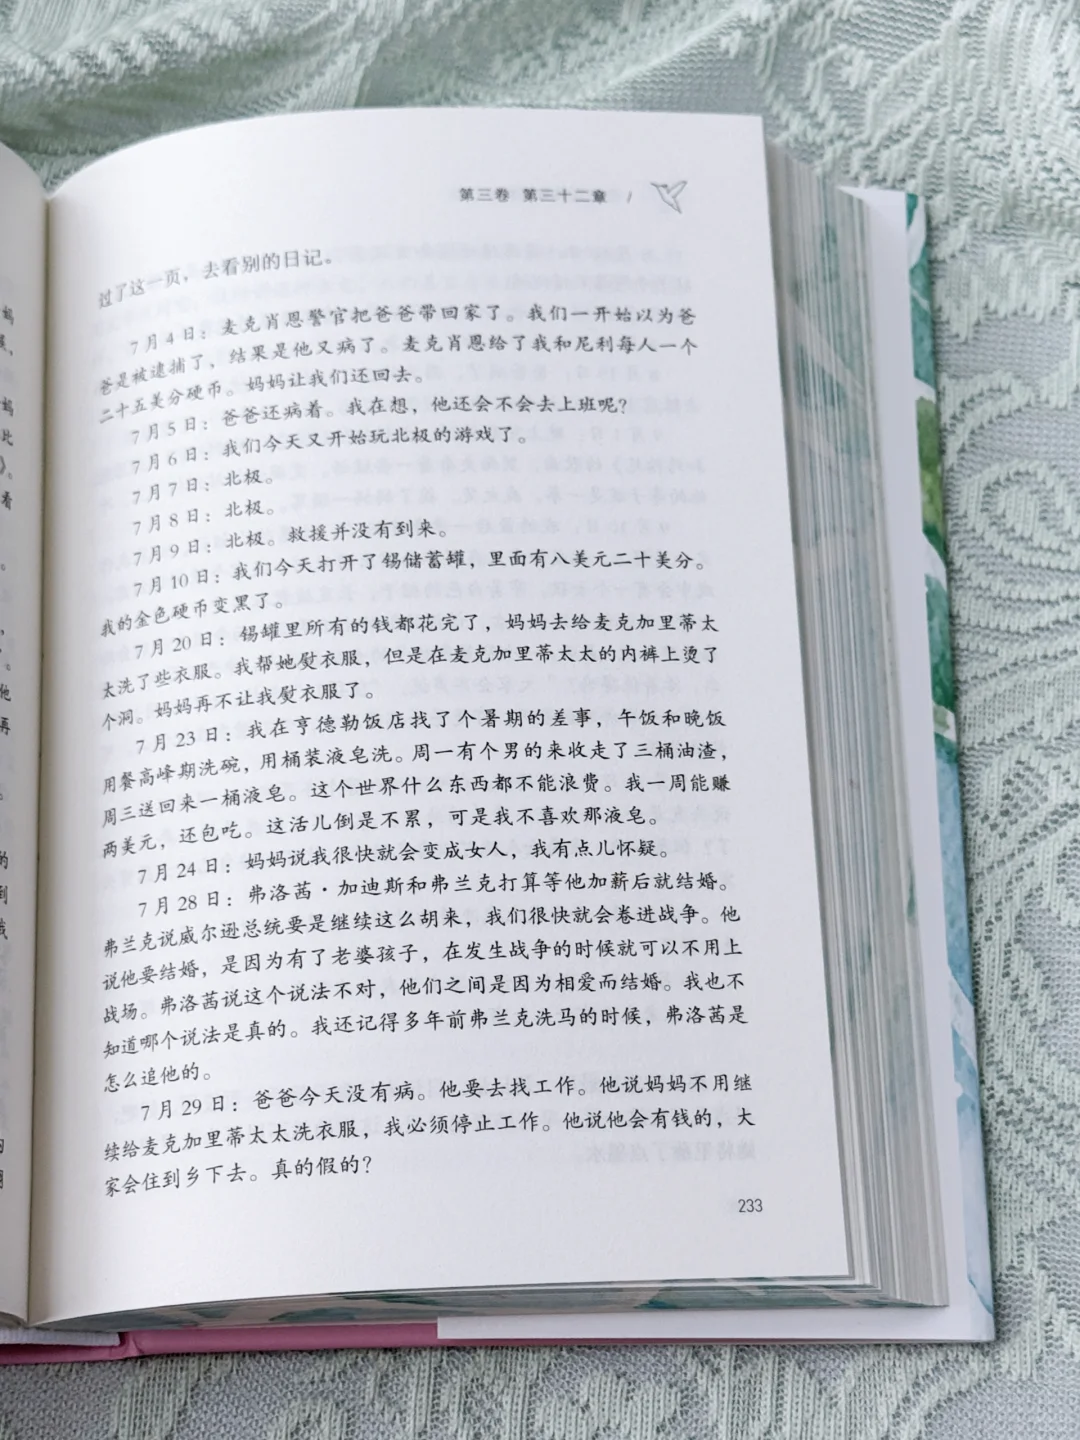 第三卷 第三十二章 /
过了这一页，去看别的日记。
7月4日：麦克肖恩警官把爸爸带回家了。我们一开始以为爸
爸是被逮捕了，结果是他又病了。麦克肖恩给了我和尼利每人一个
二十五美分硬币。妈妈让我们还回去。
7月5日：爸爸还病着。我在想，他还会不会去上班呢？
7月6日：我们今天又开始玩北极的游戏了。
7月7日：北极。
7月8日：北极。
7月9日：北极。救援并没有到来。
7月10日：我们今天打开了锡储蓄罐，里面有八美元二十美分。
我的金色硬币变黑了。
7月20日：锡罐里所有的钱都花完了，妈妈去给麦克加里蒂太
太洗了些衣服。我帮她熨衣服，但是在麦克加里蒂太太的内裤上烫了
个洞。妈妈再不让我熨衣服了。
7月23日：我在亨德勒饭店找了个暑期的差事，午饭和晚饭
用餐高峰期洗碗，用桶装液皂洗。周一有个男的来收走了三桶油渣，
周三送回来一桶液皂。这个世界什么东西都不能浪费。我一周能赚
两美元，还包吃。这活儿倒是不累，可是我不喜欢那液皂。
7月24日：妈妈说我很快就会变成女人，我有点儿怀疑。
7月28日：弗洛茜·加迪斯和弗兰克打算等他加薪后就结婚。
弗兰克说威尔逊总统要是继续这么胡来，我们很快就会卷进战争。他
说他要结婚，是因为有了老婆孩子，在发生战争的时候就可以不用上
战场。弗洛茜说这个说法不对，他们之间是因为相爱而结婚。我也不
知道哪个说法是真的。我还记得多年前弗兰克洗马的时候，弗洛茜是
怎么追他的。
7月29日：爸爸今天没有病。他要去找工作。他说妈妈不用继
续给麦克加里蒂太太洗衣服，我必须停止工作。他说他会有钱的，大
家会住到乡下去。真的假的？
233